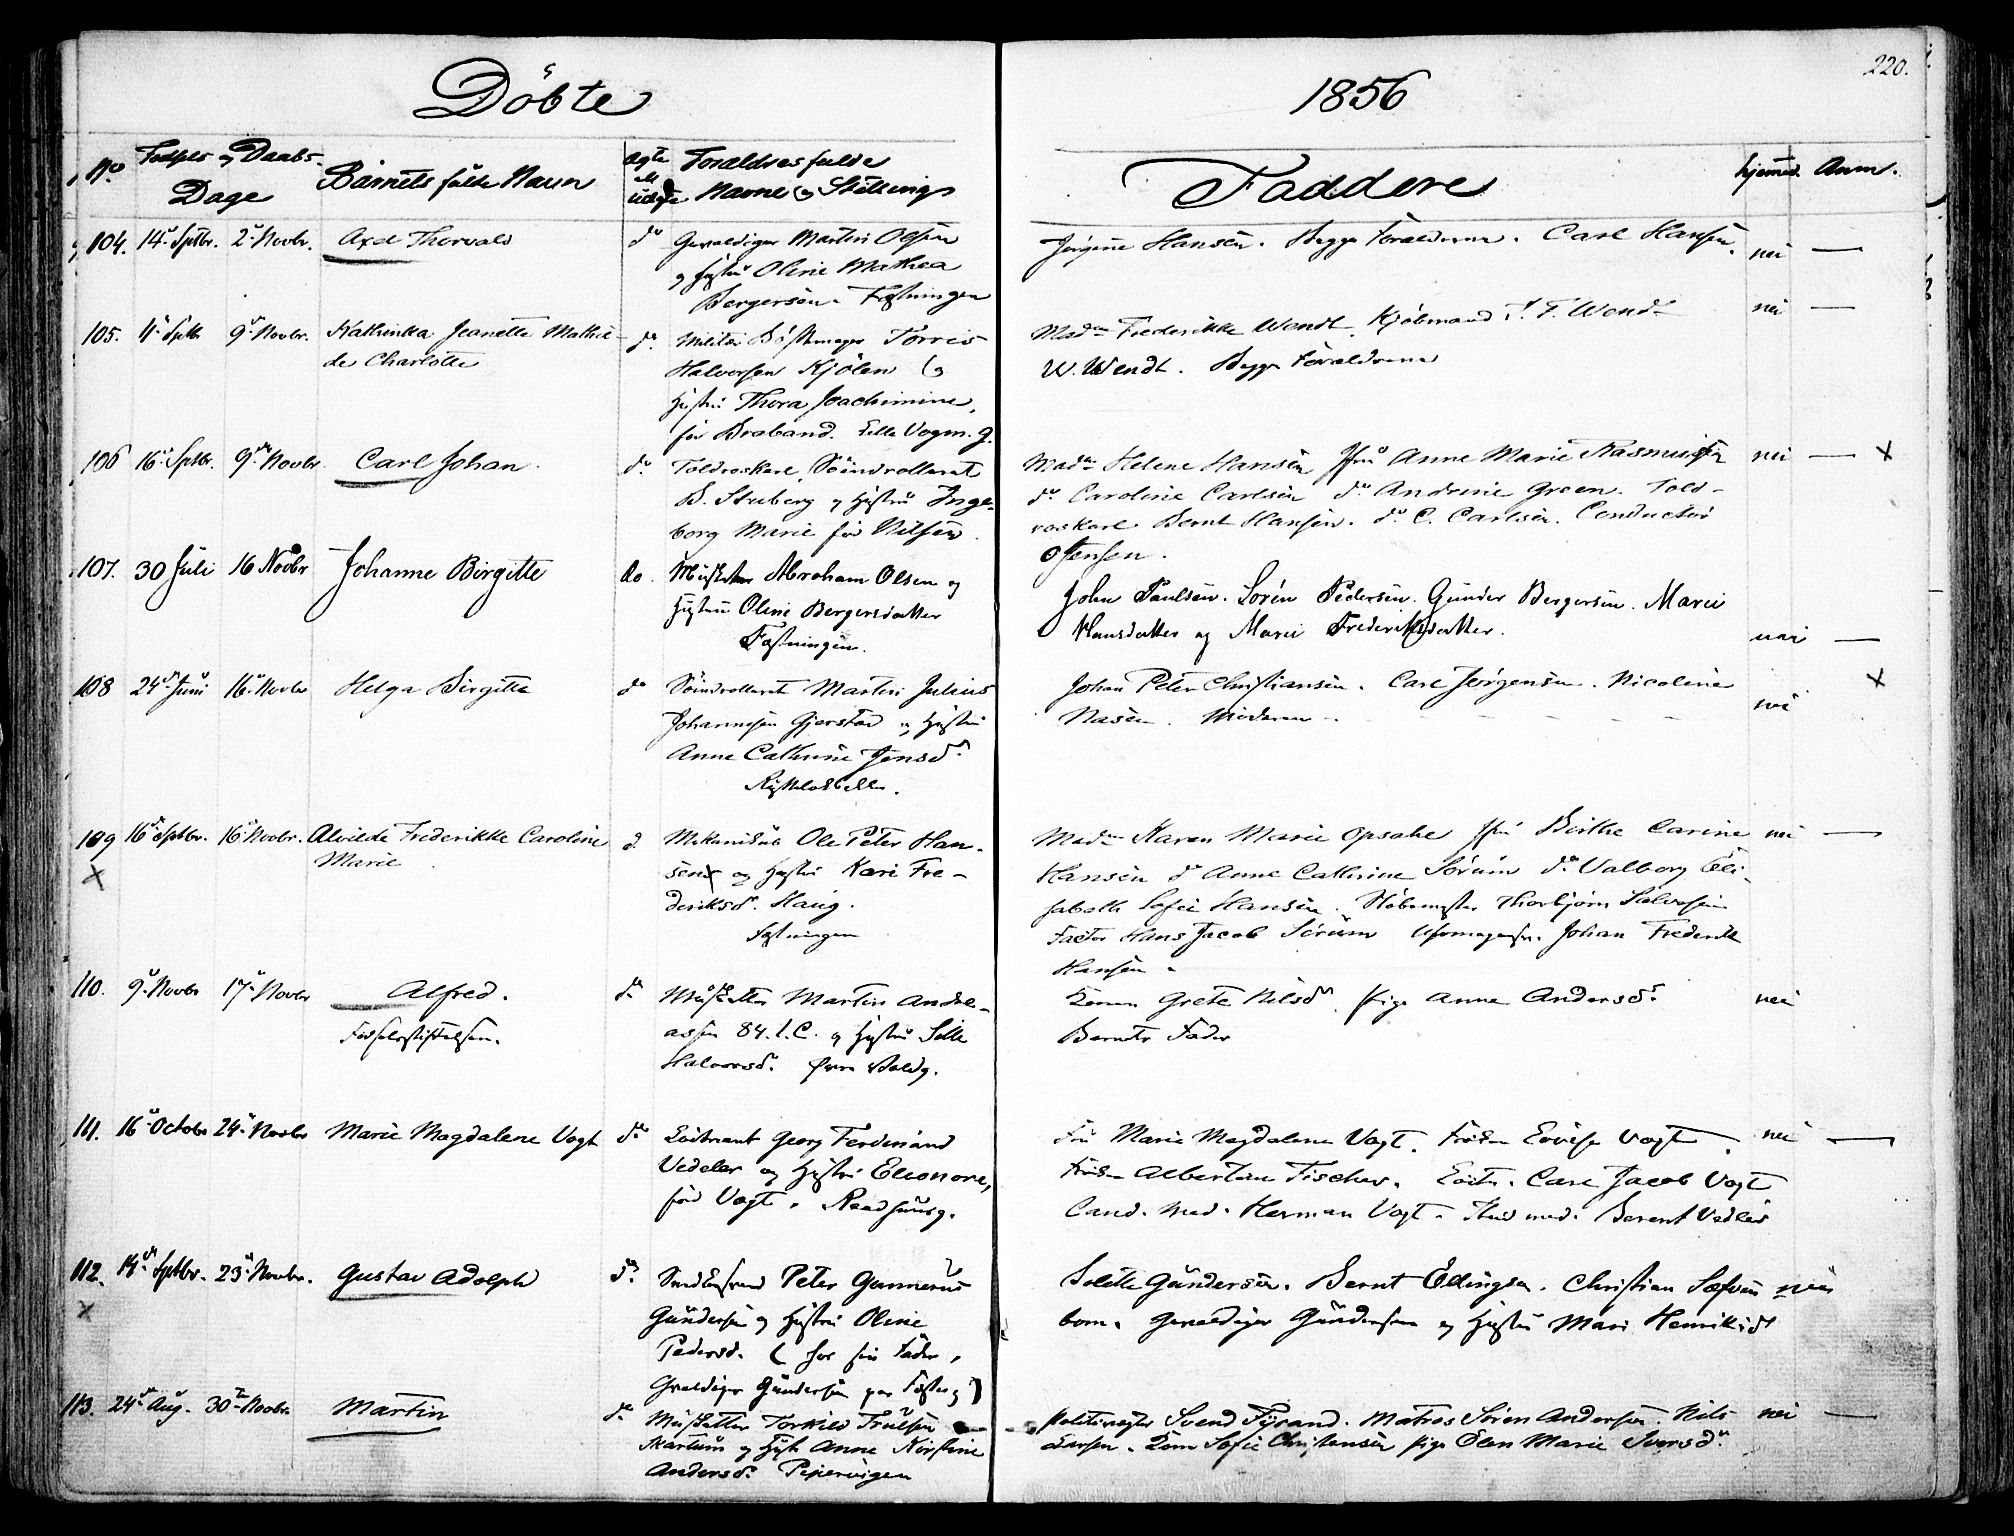 Döbte
1856
220.
No Fødsels og Daabs- Dage
Barnets fulde Navn
ægte ell. uægte
Forældres fulde Navne og Stilling
Faddere
hjemmed. Anm.
104. 14 Septbr. 2 Novbr. Axel Thorvald do Gevaldiger Martin Olsen
og Hustru Oline Mathea
Bergersen. Fæstningen
Hansen. Begge Forældrene. Carl Hansen. nei —
105. 11 Septb 9 Novbr. Kathinka Jeanette Mathil-
de Charlotte
do Torris
Halvorsen Kjölen og
Hustru Thora Joachimine,
för Braband. Lille Vogm. g.
Madm Frederikke Wendt. Kjöbmand F. Wendt nei —
W. Wendt. Begge Forældrene
106 16 Septbr. 9 Novbr Carl Johan. do Toldroskarl, Söindrolleret
B. Stuberg og Hustru Inge-
borg Marie för Nilsen.
Madm Helene Hansen Jfru Anne Marie Rasmussen nei — x
do Caroline Carlsen do Andrine Green. Told-
roskarl Bernt Hansen. do C. Carlsen. Conductör
Jensen.
107. 30 Juli 16 Novbr Johanne Birgitte do. Musketer Abraham Olsen og
Hustru Oline Bergersdatter
Fæstningen.
John Paulsen. Sörén Pedersen. Gunder Bergersen. Marie
Hansdatter og Marie Frederiksdatter. nei —
108 24 Juni 16 Novbr Helga Birgitte do Söindrolleret Martin Julius
Johannesen Gjerstad og Hustru
Anne Cathrine Jensd.
Johan Peter Christiansen. Carl Jörgensen. Nicoline nei x
Nasen. Moderen.
109 16 Septbr. 16 Novbr. Alvilde Frederikke Caroline
Marie
x
d. Mekanikus Ole Peter Han-
sen og Hustru Kari Fre-
deriksd. Haug.
Fæstningen
Madm Karen Marie Opsahl Jfru Birthe Carine nei —
Hansen do Anne Cathrine Sörum do Valborg Eli-
sabeth Sofie Hansen. Thorbjörn Halvorsen
Factor Hans Jacob Sörum Johan Frederik
Hansen.
110. 9 Novbr 17 Novbr Alfred.
Fødselsstiftelsen.
do Musketer Martin Andre-
assen 84. l. C. og Hustru Sille
Halvorsd. Övre Voldg.
Konen Grete Nilsd. Pige Anne Andersd. nei
Barnets Fader
111. 16 Octobr 24 Novbr Marie Magdalene Vogt do Löitnant Georg Ferdinand
Vedeler og Hustru Eleonore,
född Vogt. Raadhuusg.
Fru Marie Magdalena Vogt. Frök. Lovise Vogt. nei —
Frök. Albertine Fischer. Löitn. Carl Jacob Vogt
Cand. med. Herman Vogt. Stud med. Berent Vedeler
112. 14 Septbr. 23 Novbr. Gustav Adolph
x
do Peter Gunnerius
Gundersen og Hustru Oline
Pedersd. (hos sin Fader,
Gevaldiger Gundersen paa Fæstng)
Gundersen. Bernt Ellingsen. Christian Sæfven nei
bom. Gevaldiger Gundersen og Hustru Mari Henriksd
113. 24 Aug. 30 Novbr. Martin do Musketer Torkild Trulsen
Martum og Hust. Anne Kirstine
Andersd. Pipervigen
Politivægter Svend Fyrand. Matros Sören Andersen. Nils nei —
Larsen. Kone Sofie Christensen Pige Elen Marie Sversd.